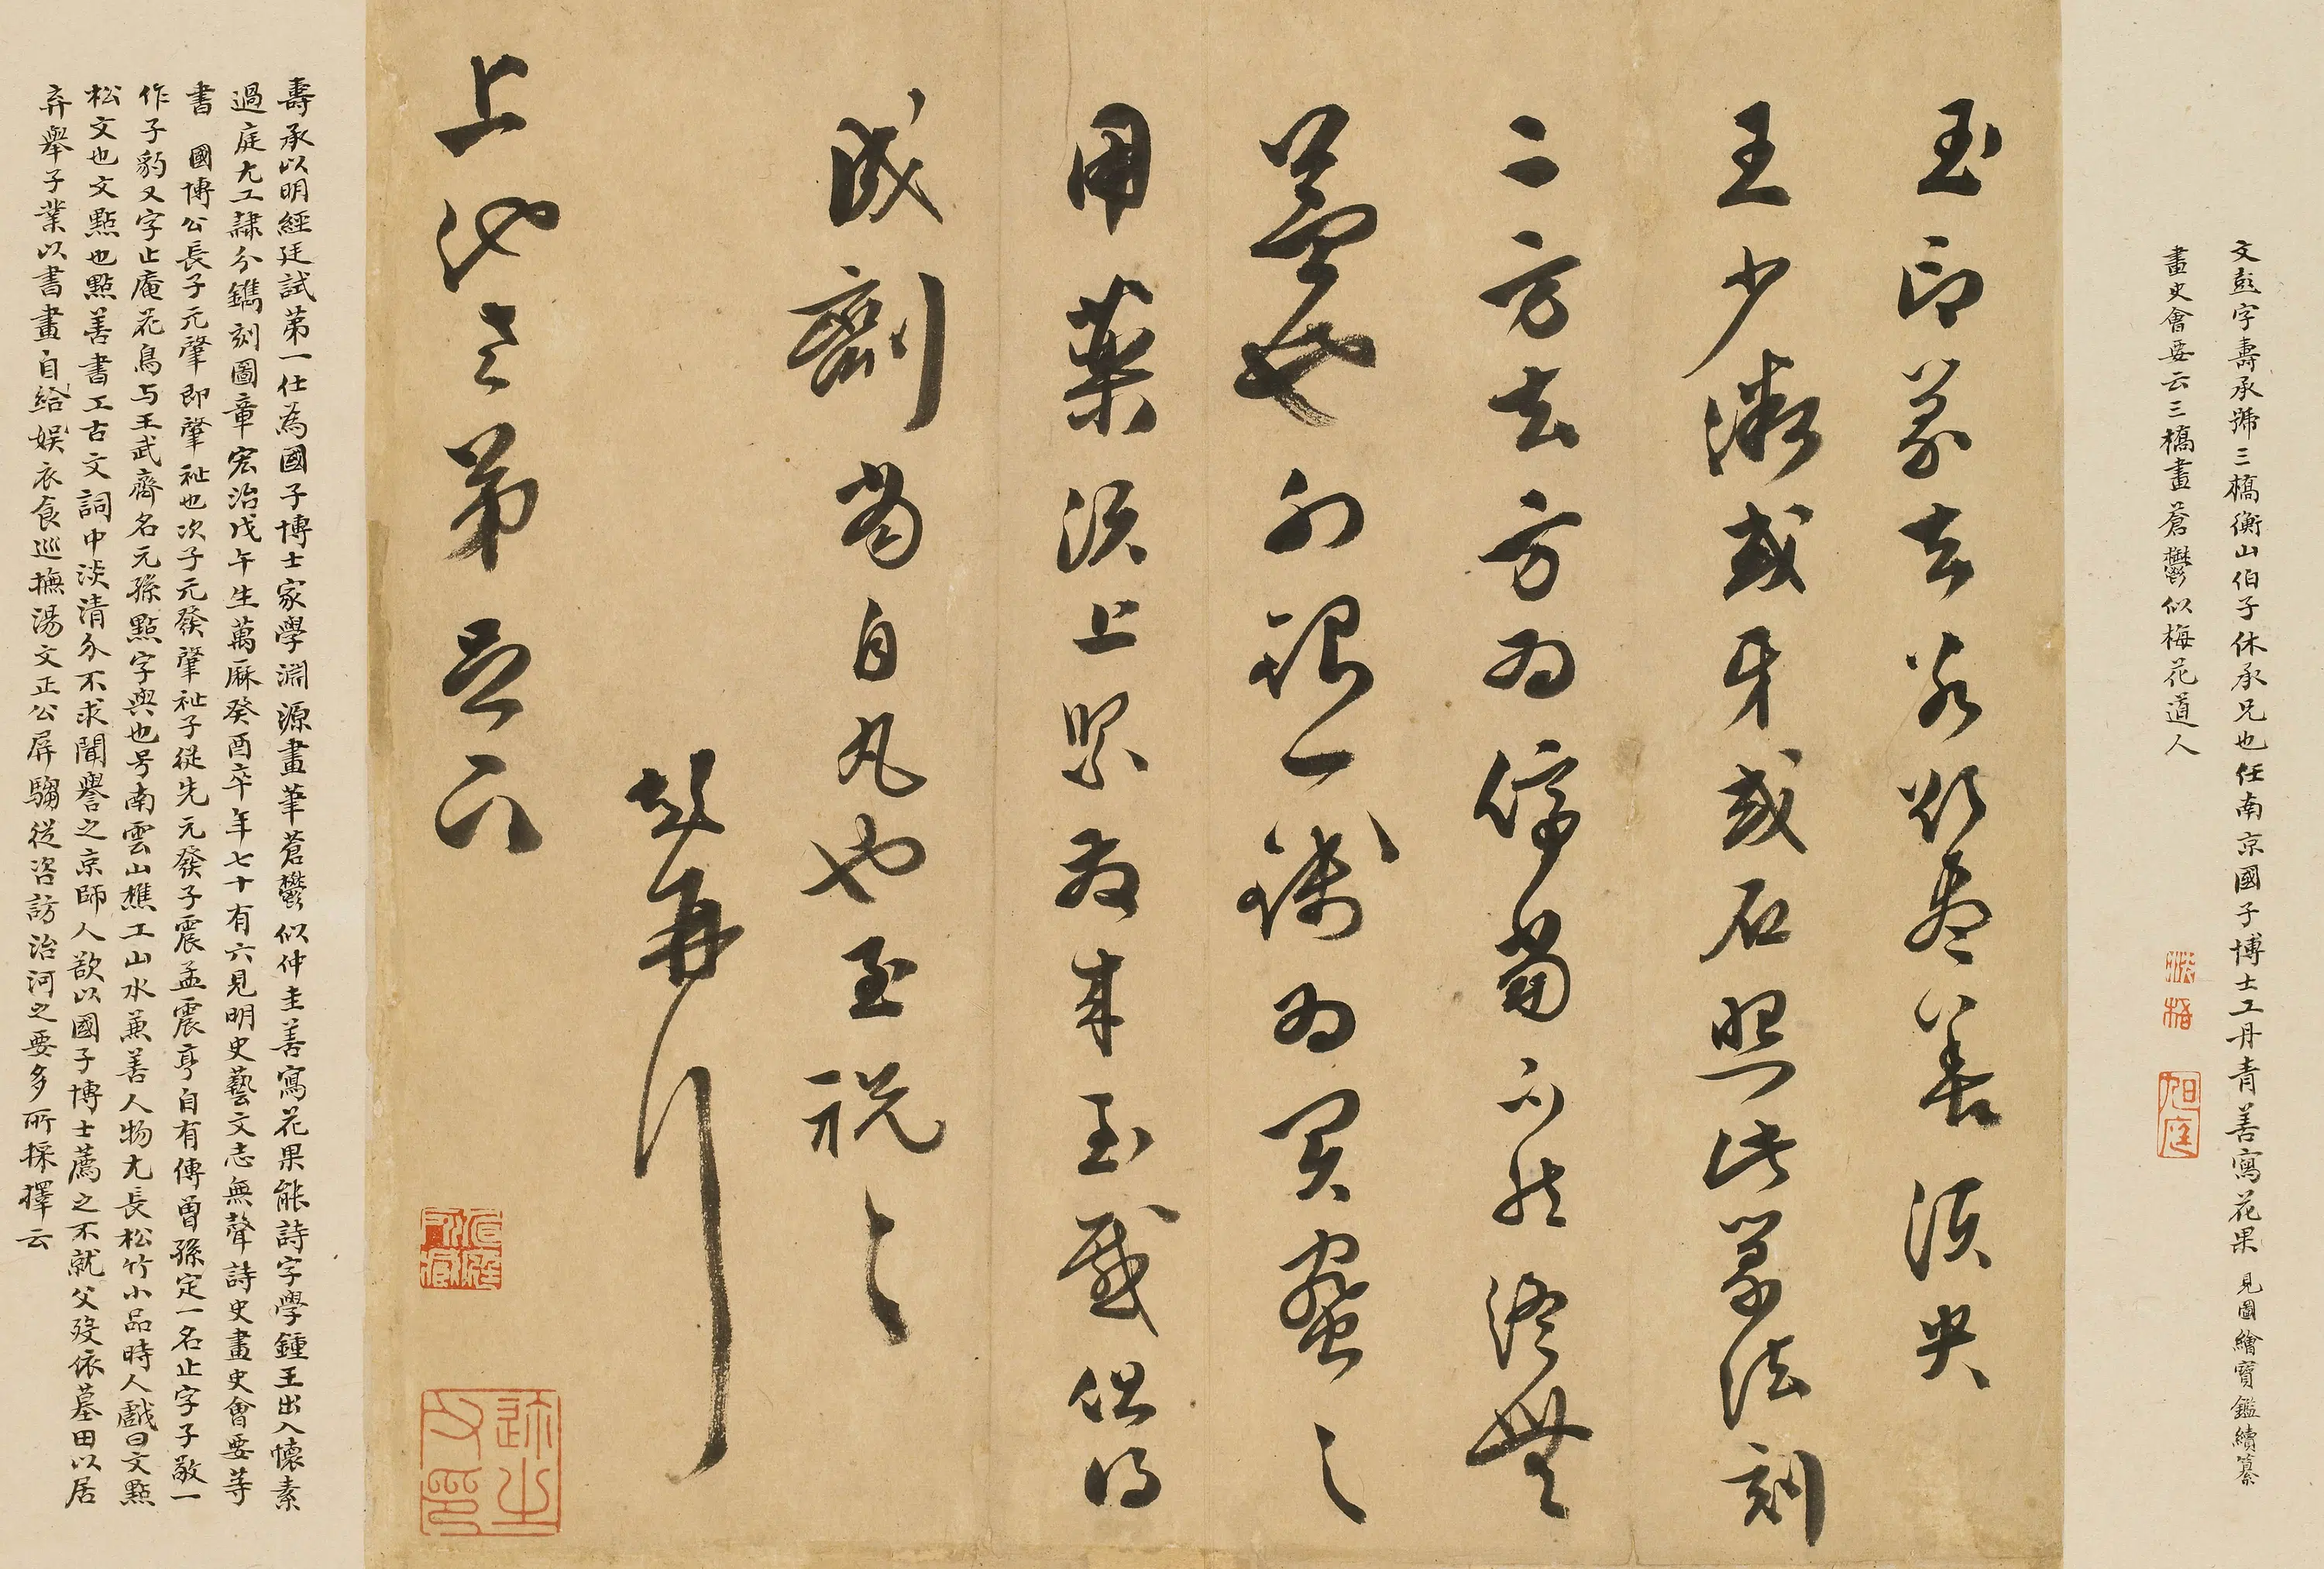 文彭字壽承號三橋衡山伯子休承兄也任南京國子博士工丹青善寫花果見圖繪寶鑑續纂
畫史會要云三橋畫蒼鬱似梅花道人
玉印篆去若欲盡善須央
王少微或牙或石照此篆法刻
二方去方為停當不然終無
益也外銀一錢為買蜜之
用藥須上緊為我玉成但得
成劑當自丸也至祝々
彭再行
上池老弟足下
壽承以明經廷試第一仕為國子博士家學淵源畫筆蒼鬱似仲圭善寫花果能詩字學鍾王出入懷素
過庭尤工隸分鐫刻圖章宏治戊午生萬厤癸酉卒年七十有六見明史藝文志無聲詩史畫史會要等
書 國博公長子元肇即肇祉也次子元發肇祉子從先元發子震孟震亨自有傳曾孫定一名止字子敬一
作子豹又字止庵花鳥与王武齊名元孫點字與也号南雲山樵工山水兼善人物尤長松竹小品時人戲曰文點
松文也文點也點善書工古文詞中淡清介不求聞譽之京師人欲以國子博士薦之不就父歿依墓田以居
弃舉子業以書畫自給娛衣食巡撫湯文正公屏騶從咨訪治河之要多所採擇云